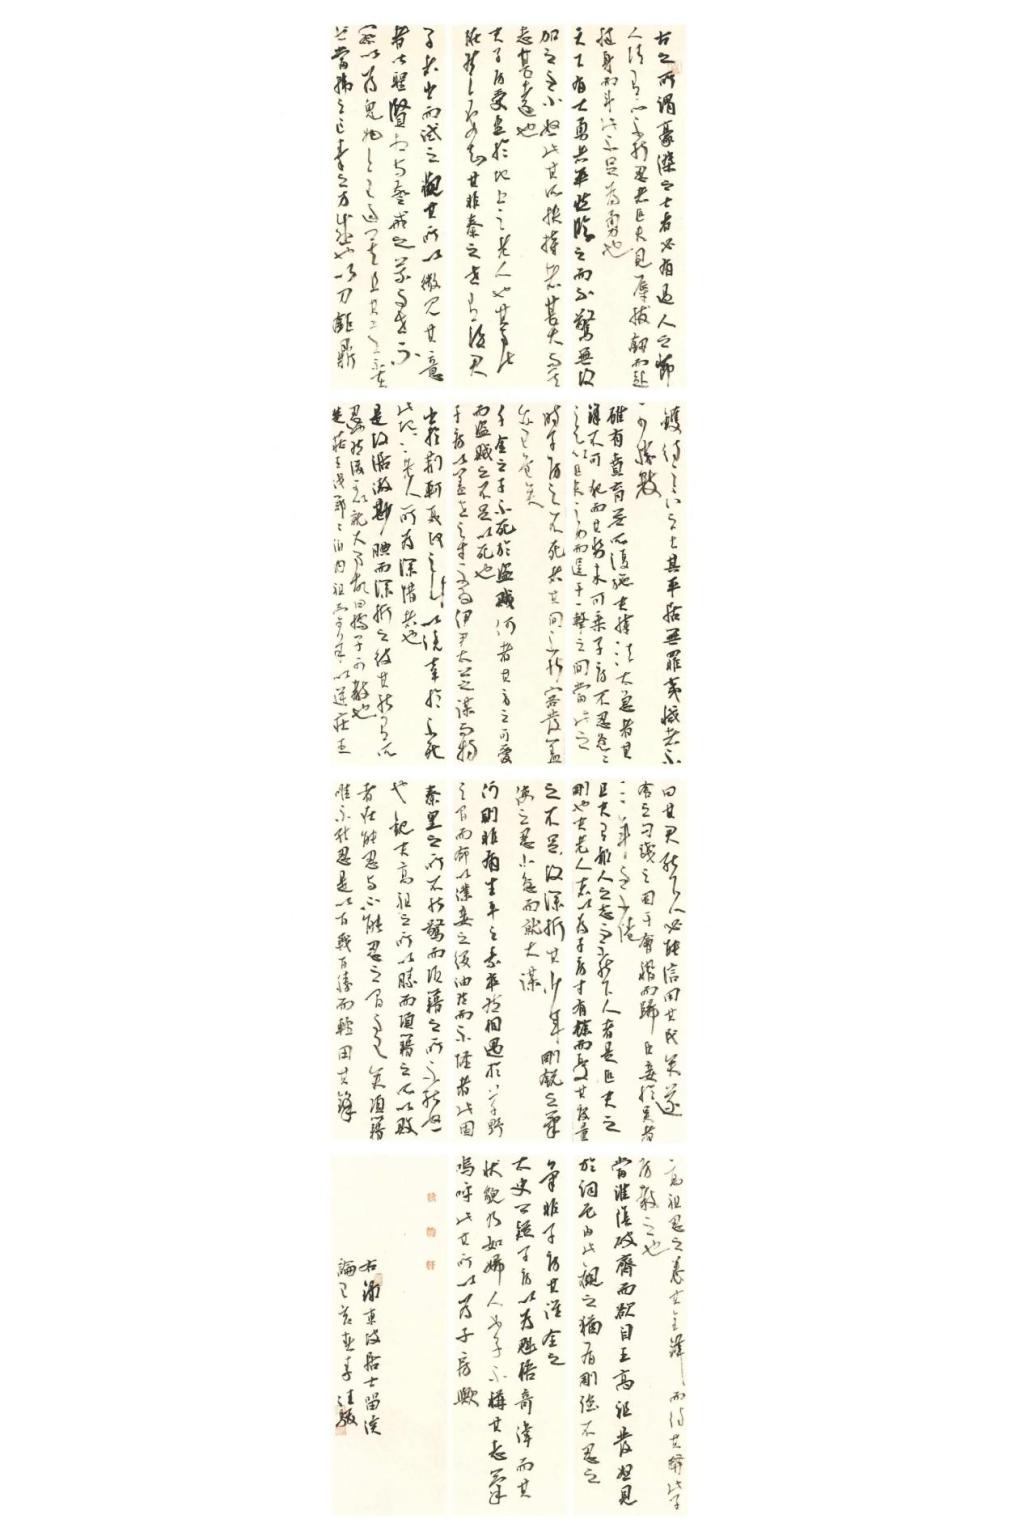 古之所謂豪傑之士者必有過人之節
人情有所不能忍者匹夫見辱拔劍而起
挺身而鬥此不足為勇也
天下有大勇者卒然臨之而不驚無故
加之而不怒此其所挾持者甚大而其
志甚遠也
夫子房受書於圯上之老人也其事
其非秦之世有隱君
子者出而試之觀其所以微見其意
者皆聖賢相與警戒之義而世不
察以為鬼物亦已過矣且其意不在
書當韓之亡秦之方盛也以刀鋸鼎
鑊待天下之士其平居無罪夷滅者不
可勝數
雖有賁育無所復施夫持法太急者其
鋒不可犯而其勢未可乘子房不忍忿忿
之心以匹夫之力而逞于一擊之間當此之
時子房之不死者其間不能容髮蓋
亦已危矣
千金之子不死於盜賊何者其身之可愛
而盜賊之不足以死也
子房以蓋世之才不為伊尹太公之謀而特
出於荊軻聶政之計以僥幸於不死
此圯上老人所為深惜者也
是故倨傲鮮腆而深折之彼其能有所
忍也然後可以就大事故曰孺子可教也
楚莊王伐鄭鄭伯肉袒牽羊以逆莊王
曰其君能下人必能信用其民矣遂
舍之勾踐之困于會稽而歸臣妾於吳者
三年而不倦
且夫有報人之志而不能下人者是匹夫之
剛也夫老人者以為子房才有餘而憂其度量
之不足故深折其少年剛銳之氣
使之忍小忿而就大謀
何則非有生平之素卒然相遇於草野
之間而命以僕妾之役油然而不怪者此固
秦皇之所不能驚而項籍之所不能怒
也觀夫高祖之所以勝而項籍之所以敗
者在能忍與不能忍之間而已矣項籍
惟不能忍是以百戰百勝而輕用其鋒
高祖忍之養其全鋒而待其弊此子
房教之也
當淮陰破齊而欲自王高祖發怒見
於詞色由此觀之猶有剛強不忍之
氣非子房其誰全之
太史公疑子房以為魁梧奇偉而其
狀貌乃如婦人女子不稱其志氣
嗚呼此其所以為子房歟
右录東坡居士留侯
論己亥